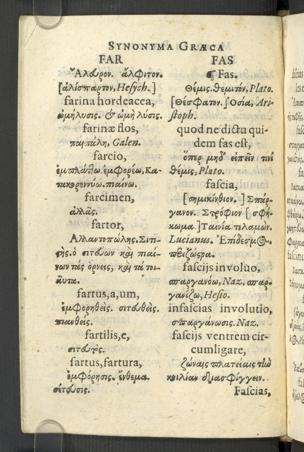 SYNONYMA GRÆCA
FAR
Ἄλευρον. ἄλφιτον.
Hesych.]
farina hordeacea,
ὠμήλυσις. & ὠμὴ λύσις.
farinæ flos,
παιπάλη, Galen.
farcio,
ἐμπλάττω. ἐμφορέω, Κα-
πιαίνω.
farcimen,
ἀλλᾶς.
fartor,
Ἀλλαντοπώλης. Σιτι-
ὁ σιτεύων καὶ πιαί-
νων τὰς ὄρνεις, καὶ τὰ τοι-
αῦτα.
fartus, a, um,
ἐμφορηθείς. σιτευθείς.
πιανθείς.
fartilis, e,
fartus, fartura,
ἐμφόρησις. ἔνθεμα.
σίτευσις.
FAS
¶ Fas.
Θέμις. θεμιτόν, Plato.
Ὁσία, Ari-
stoph.
quod ne dictu qui-
dem fas est,
ὅπερ μηδ᾽ εἰπεῖν τινὶ
θέμις, Plato.
fascia,
[σημικίνθιον.] Σπάρ-
γανον. Στρόφιον [σφή-
κωμα.] Ταινία τελαμών.
Lucianus. Ἐπίδεσμος,
fascijs inuoluo,
σπαργανόω, Naz. σπαρ-
γανίζω, Hesio.
infascias inuolutio,
σπαργάνωσις. Naz.
fascijs ventrem cir-
cumligare,
ζώναις πλατείαις τὴν
κοιλίαν διασφίγγειν.
Fascias,